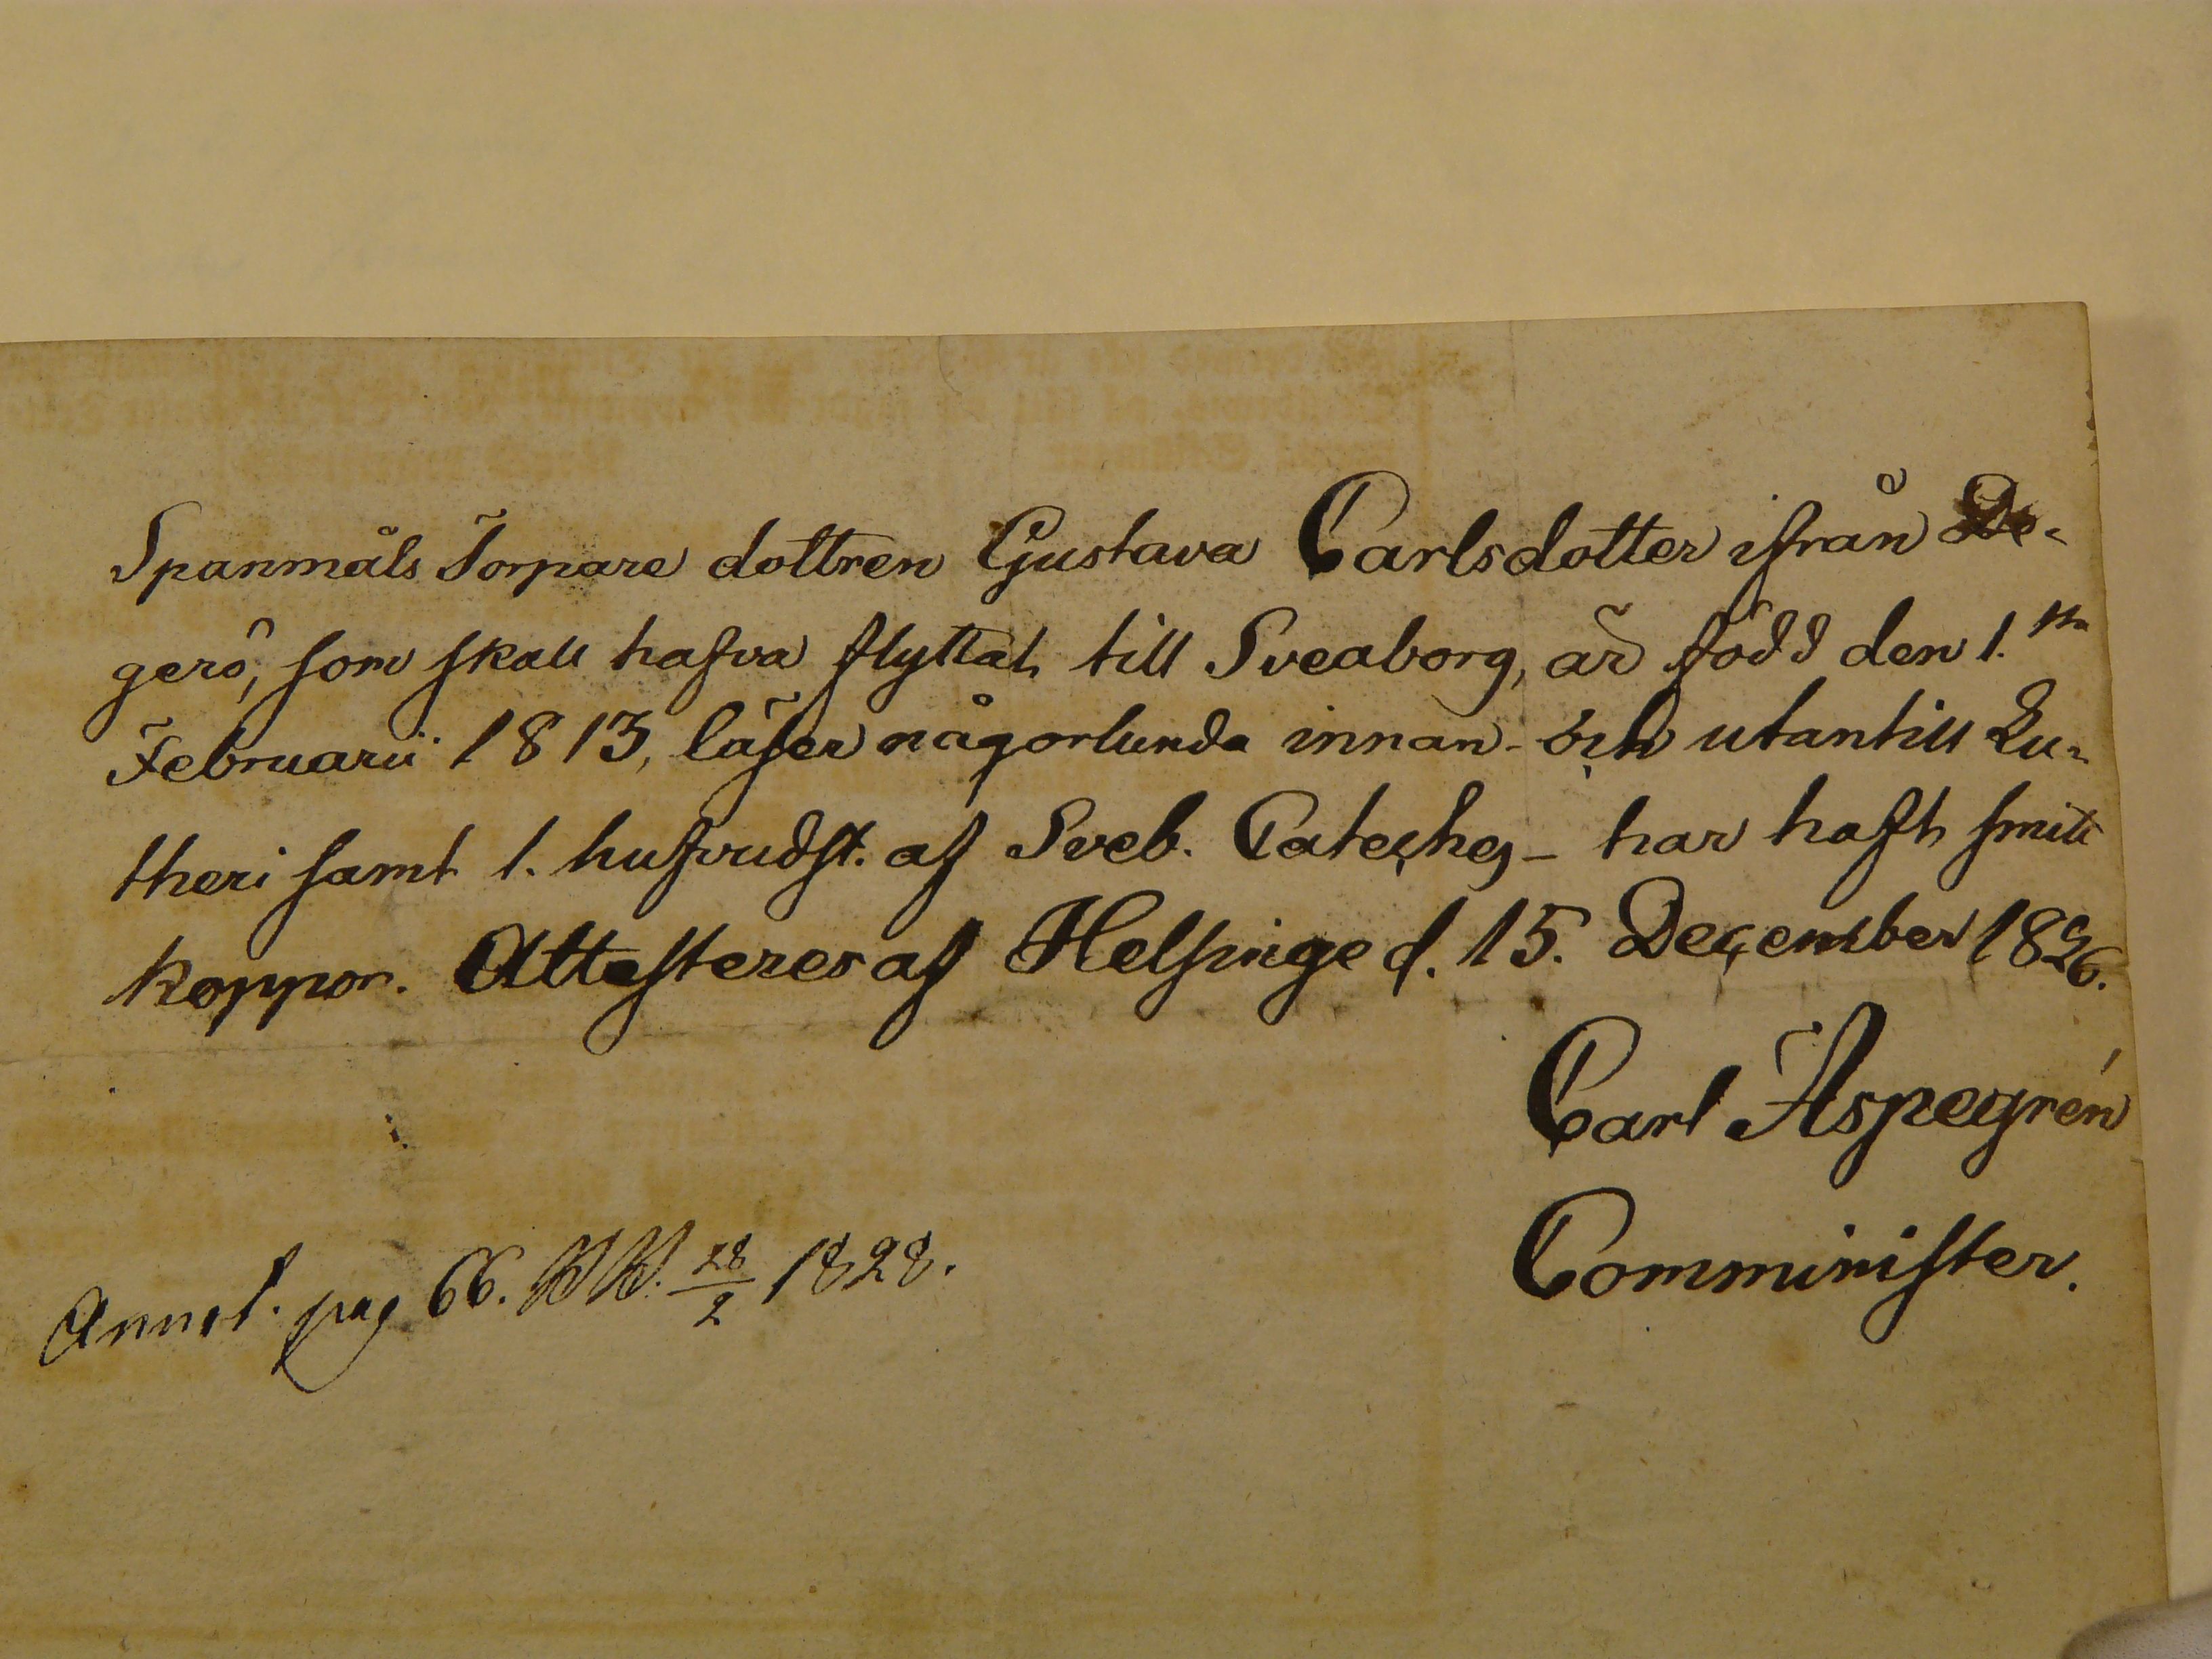 Spanmåls Torpare dottren Gustava Carlsdotter ifrån De-
gerö, som skall hafva flyttat till Sveaborg, är född den 1.sta
Februarii 1813, läser någorlunda innan- och utantill Lu-
theri samt 1. hufvudst. af Sveb. Cateches - har haft smitt
koppor. Attesteres af Helsinge d. 15. December 1826.
Carl Aspegrén
Comminister.
Annot. pag 66. 28/2 1828.